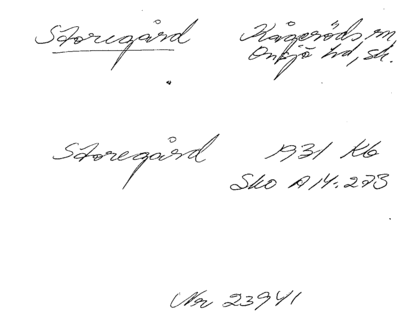 Storegård Kågeröds sn,
Onsjö hd, Sk.
Storegård 1931 Kb
Sko A14:273
Nr 23941